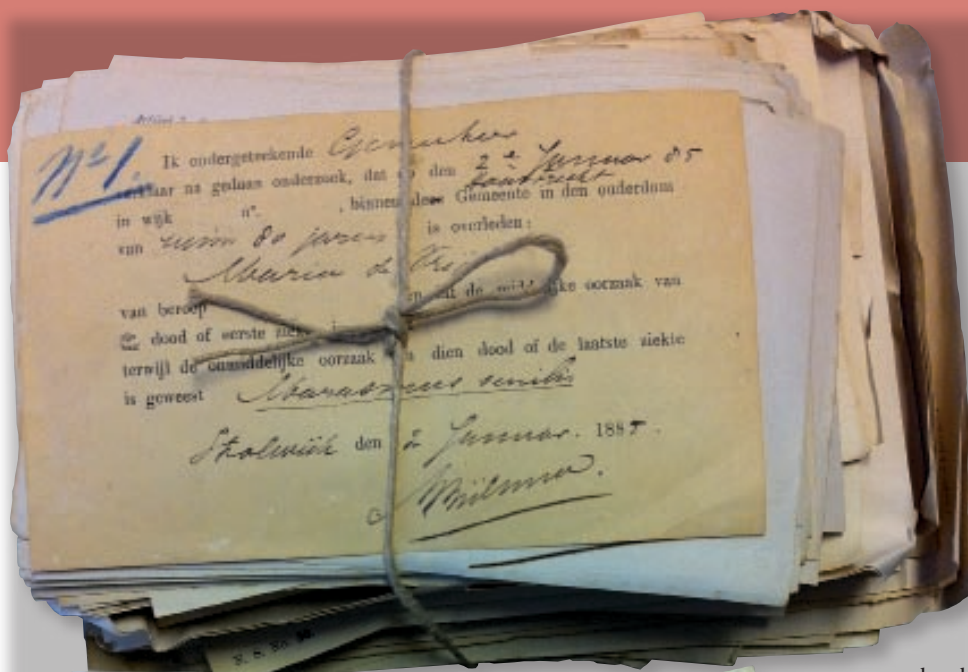 No 1.
Ik ondergeteekende
verklaar na gedaan onderzoek, dat op den 2e Januar 85
in wijk n°. , binnen deze Gemeente in den ouderdom
van ruim 80 jaren is overleden:
Maria de
van beroep en dat de middelijke oorzaak van
dood of eerste ziekte
terwijl de onmiddelijke oorzaak van dien dood of de laatste ziekte
is geweest Marasmus senilis
Stolwijk den 2 Januar. 1885.